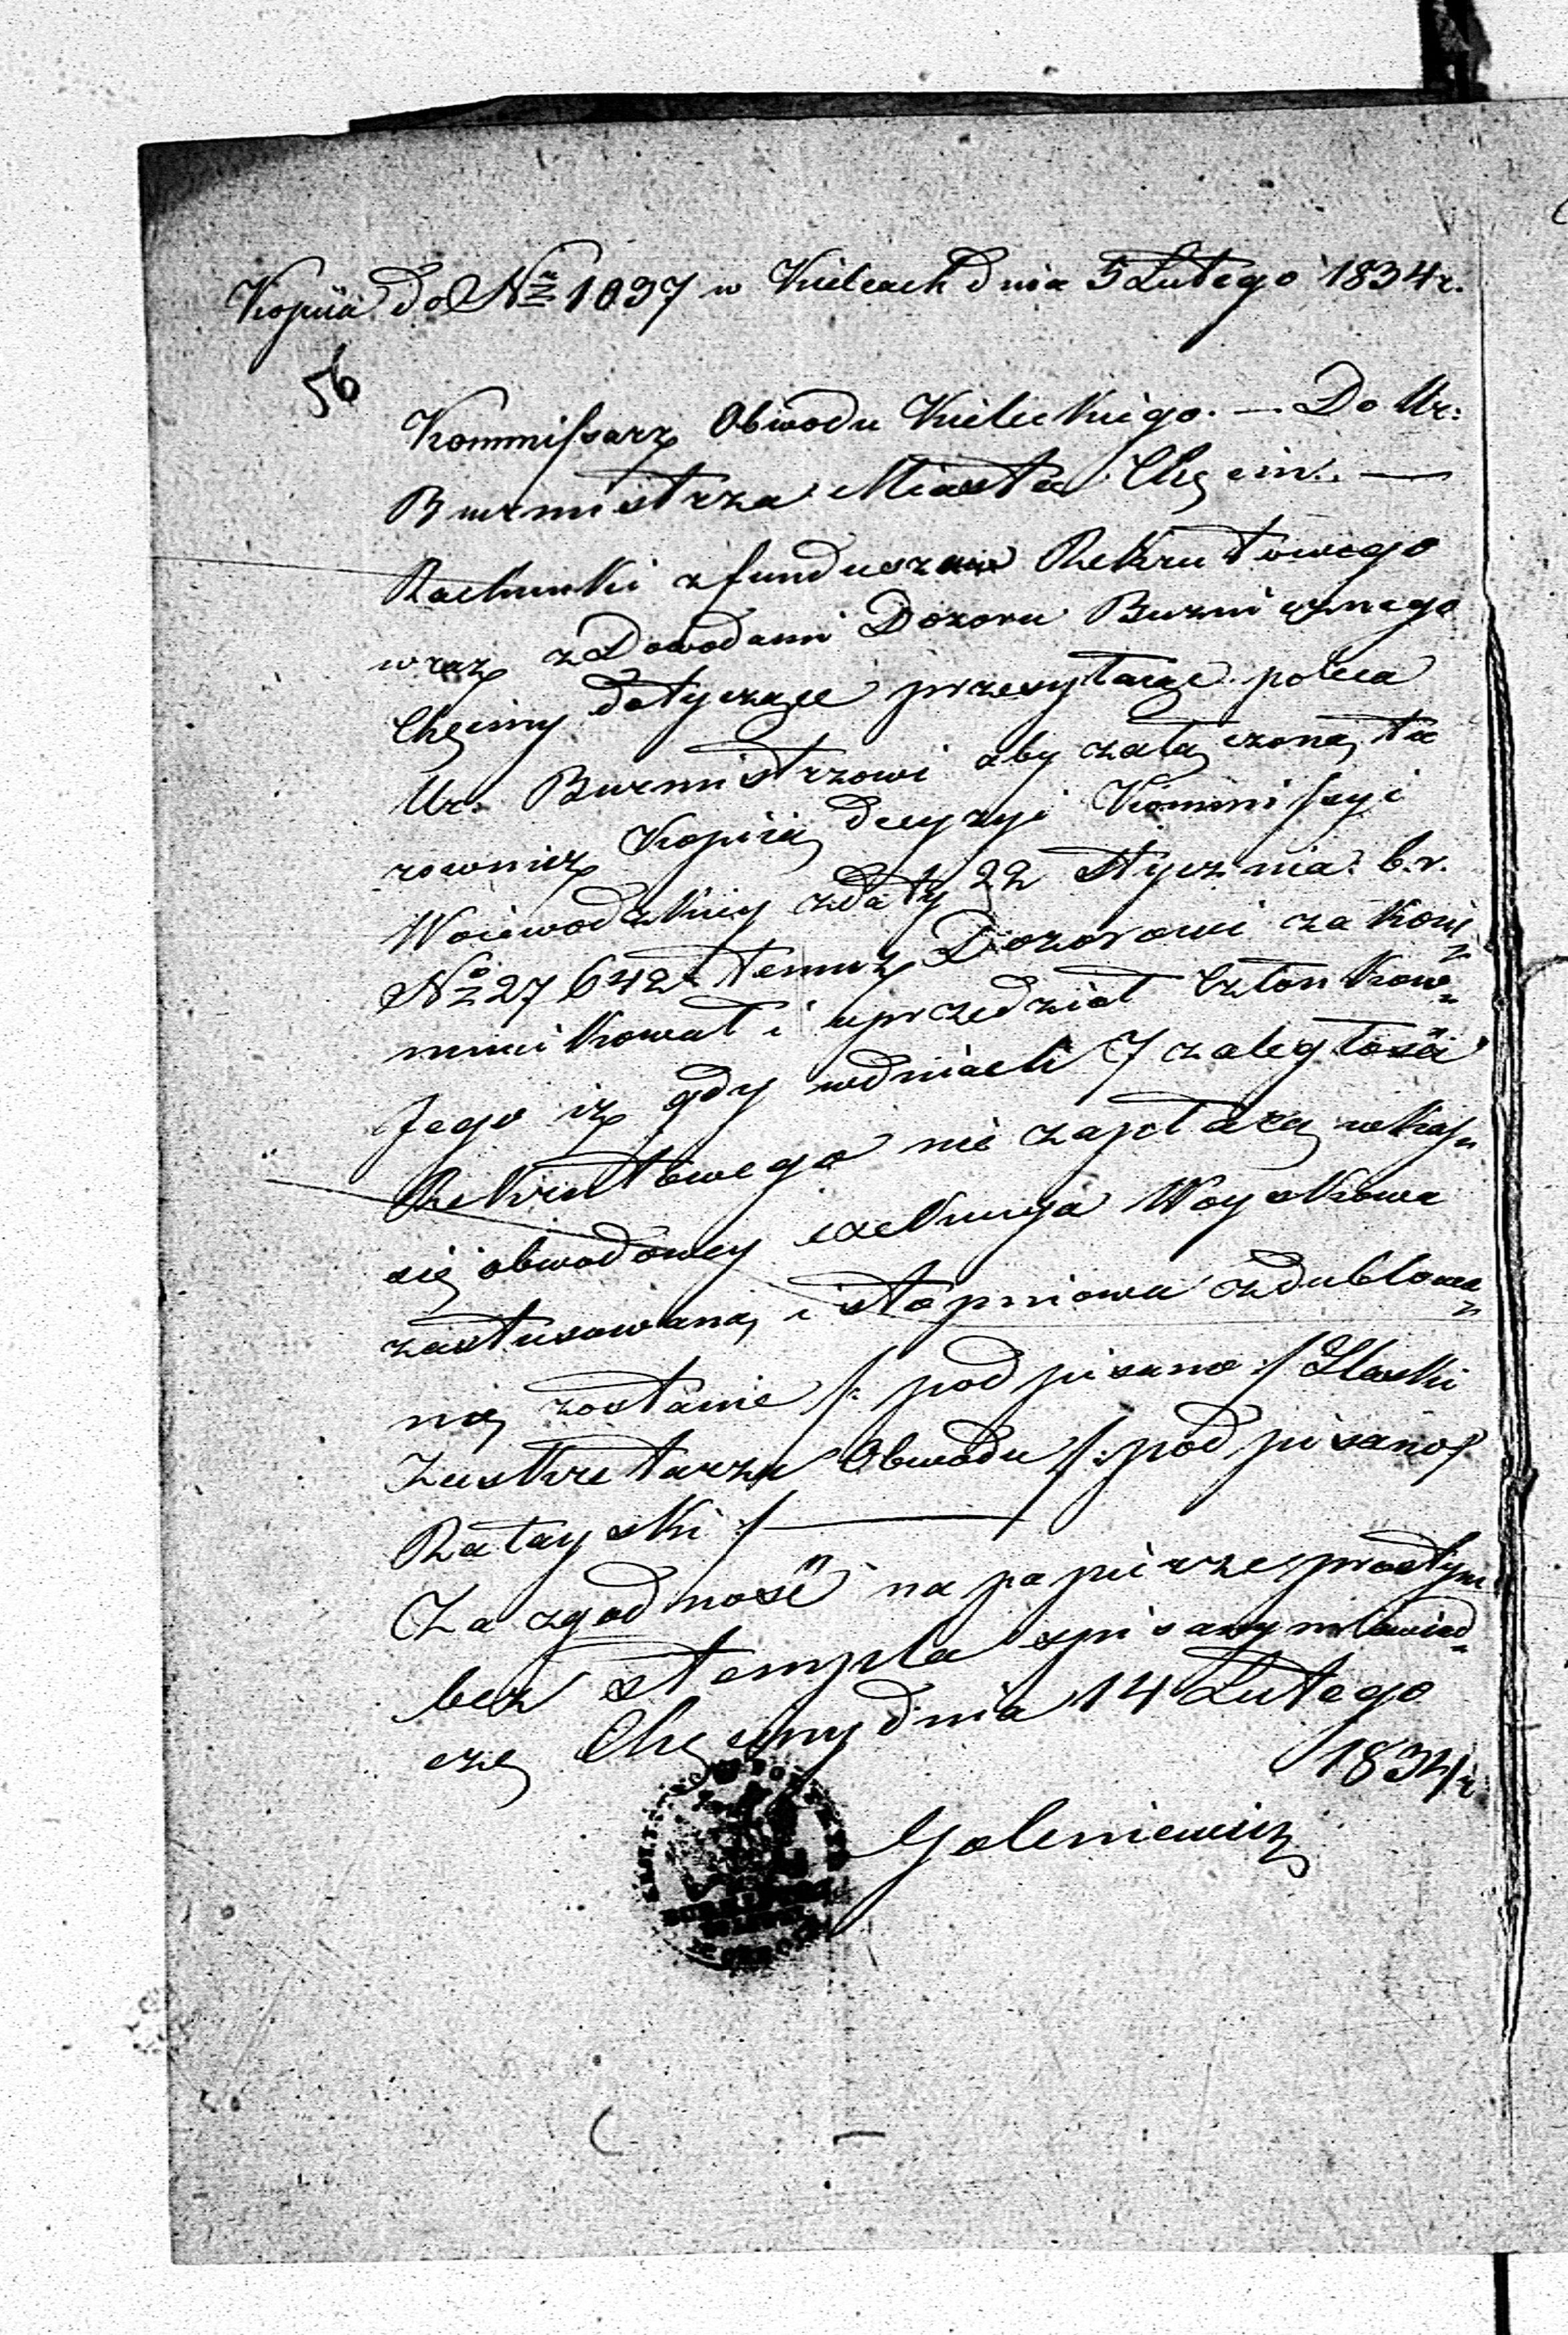 Kopiia do Nr 1037 w Kielcach dnia 5 Lutego 1834 r.
56
Kommissarz Obwodu Kieleckiego. — Do Ur:
Burmistrza Miasta Chęcin. —
Rachunki z funduszu Rekrutowego
wraz z Dowodami Dozoru Bużnicznego
Chęciny dotyczące przesyłaiąc poleca
Ur. Burmistrzowi aby załączoną tu
rownież Kopiią decyzyi Kommissyi
Woiewodzkiey z daty 22 Stycznia b. r.
No 27642 temuż Dozorowi zakom
munikował i uprzedził Członkow
Jego iż gdy w dniach 7 zaległości
Rekrutowego nie zapłacą w Kas
sie obwodowey exekucyia Woyskowa
zastosowaną i stopniowa zdublowa
ną zostanie /: podpisano :/ Slaski
Zustkretarza Obwodu /: podpisano
Ratayski :/ —
Za zgodność na papierze prostym
bez stempla spisany m świad
czę Chęciny dnia 14 Lutego
1834 r
Goleniewicz